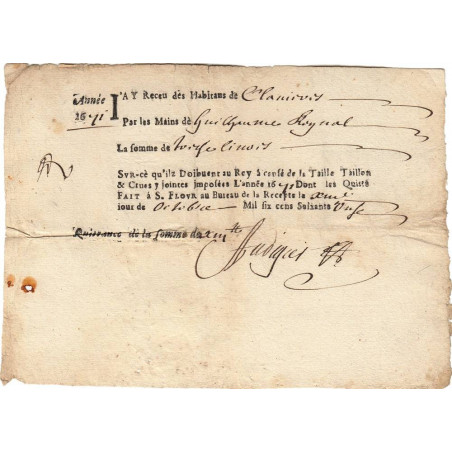 Année I'AY Receu des Habitans de Clavieres
1671 Par les Mains de Guilhaume Reynal
La somme de treze livres
SVR-cè qu'ilz Doibuent au Rey à cause de la Taille Taillon
& Crues y jointes Imposées L'année 1671 Dont les Quitte
FAIT à S. FLOVR au Bureau de la Recepte le
iour de Octobre Mil six cens Soixante Unze
Quittance de la somme de xiii tt